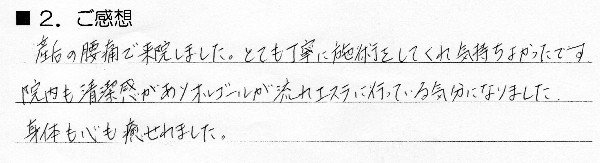 ■ 2. ご感想
産后の腰痛で来院しました。とても丁寧に施術をしてくれ気持ちよかったです
院内も清潔感がありオルゴールが流れエステに行っている気分になりました.
身体も心も癒せれました。